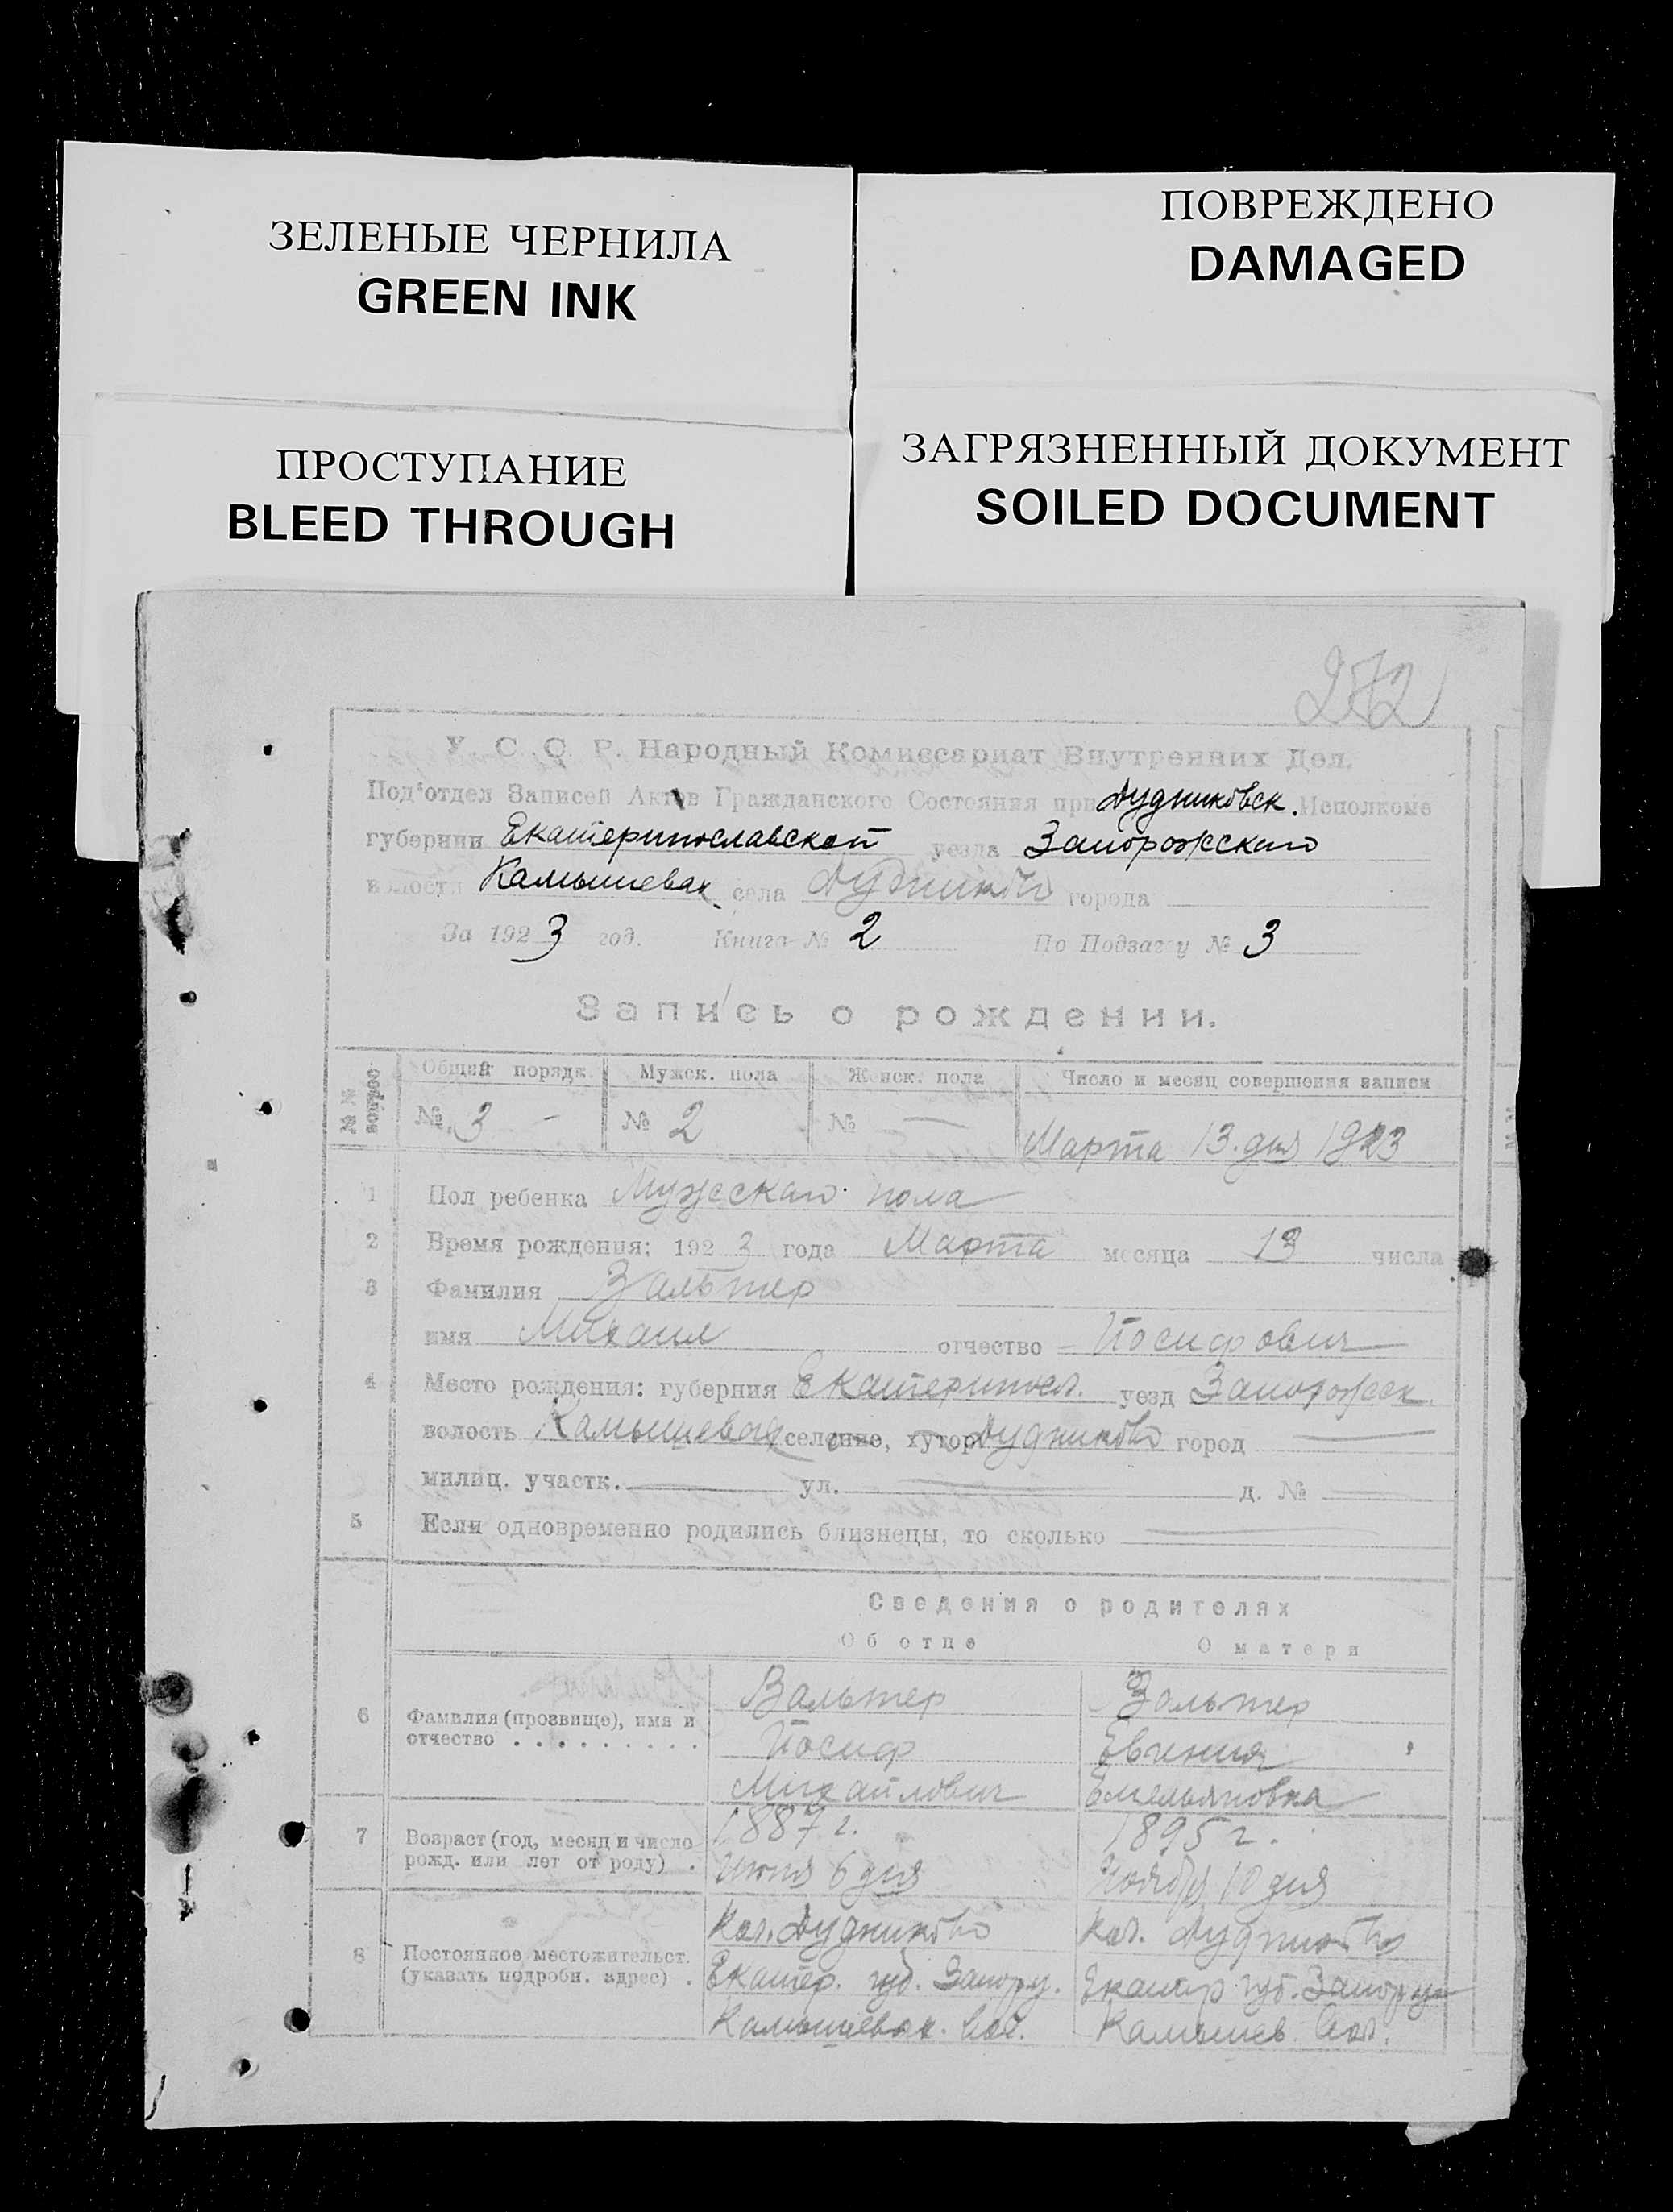 ЗЕЛЕНЫЕ ЧЕРНИЛА
GREEN INK
ПОВРЕЖДЕНО
DAMAGED
ПРОСТУПАНИЕ
BLEED THROUGH
ЗАГРЯЗНЕННЫЙ ДОКУМЕНТ
SOILED DOCUMENT
272
У. С. С. Р. Народный Комиссариат Внутренних Дел.
Под'отдел Записей Актов Гражданского Состояния при Дудниковск. Исполкоме
губернии Екатеринославской уезда Запорожскаго
волости Камышевах. села Дудниково города
За 1923 год. Книга № 2 По Подзагсу № 3
Запись о рождении.
№№ вопрос. Общий порядк. Мужск. пола Женск. пола Число и месяц совершения записи
№ 3 — № 2 № — Марта 13 дня 1923
1 Пол ребенка Мужескаго пола
2 Время рождения: 1923 года Марта месяца 13 числа
3 Фамилия Вальтер
имя Михаил отчество Иосифович
4 Место рождения: губерния Екатериносл. уезд Запорожск.
волость Камышевах селение, хутор Дудниково город —
милиц. участк. — ул. — д. № —
5 Если одновременно родились близнецы, то сколько —
Сведения о родителях
Об отце О матери
6 Фамилия (прозвище), имя и отчество . . . . . . . . .
Вальтер Вальтер
Иосиф Евгения
Михайлович Емельяновна
7 Возраст (год, месяц и число рожд. или лет от роду) .
1887 г. 1895 г.
Июня 6 дня Ноября 10 дня
8 Постоянное местожительст. (указать подробн. адрес) .
Кол. Дудниково Кол. Дудниково
Екатер. губ. Запор. у. Екатер губ. Запор у
Камышевах. вол. Камышев. вол.